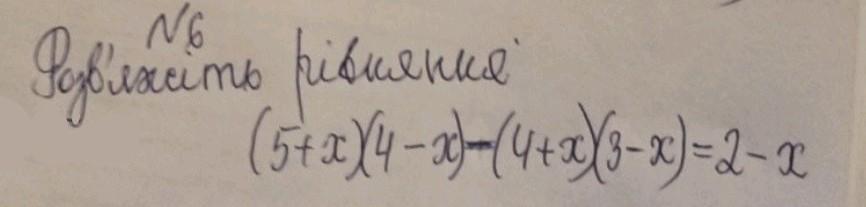 N6
Розв'яжіть рівняння
(5+x)(4-x)-(4+x)(3-x)=2-x